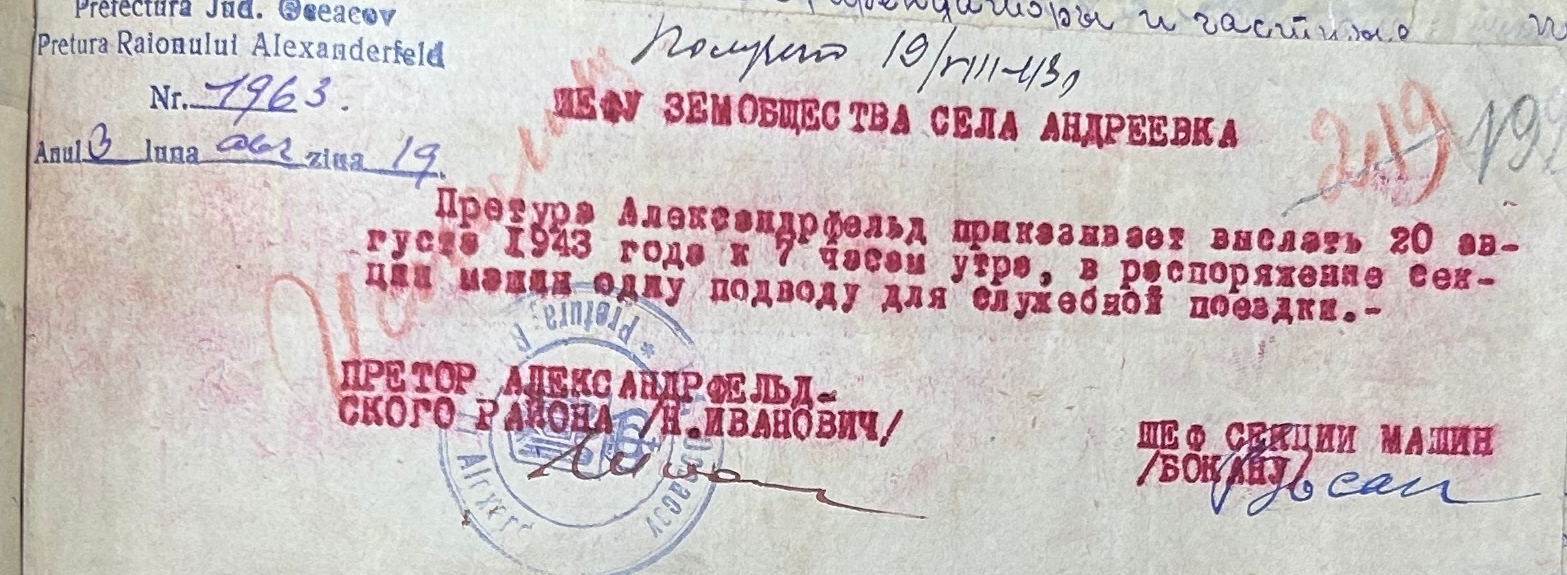 и частные
Prefectura Jud. Oceacov
Pretura Raionului Alexanderfeld
Nr. 1963.
Anul 3 luna авг ziua 19.
Получено 19/VIII-43г
ШЕФУ ЗЕМОБЩЕСТВА СЕЛА АНДРЕЕВКА
219 19
Претура Александрфельд приказывает выслать 20 ав-
густа 1943 года к 7 часам утра, в распоряжение сек-
ции машин одну подводу для служебной поездки.-
ПРЕТОР АЛЕКСАНДРФЕЛЬД-
СКОГО РАЙОНА /Н.ИВАНОВИЧ/
ШЕФ СЕКЦИИ МАШИН
/БОКАНУ/
* Pretura